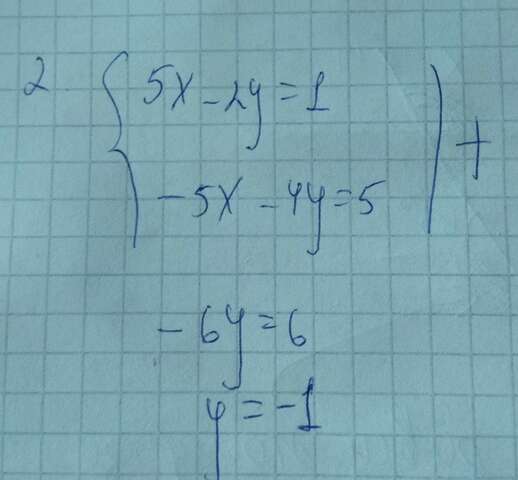 2. { 5x - 2y = 1
-5x - 4y = 5 | +
-6y = 6
y = -1